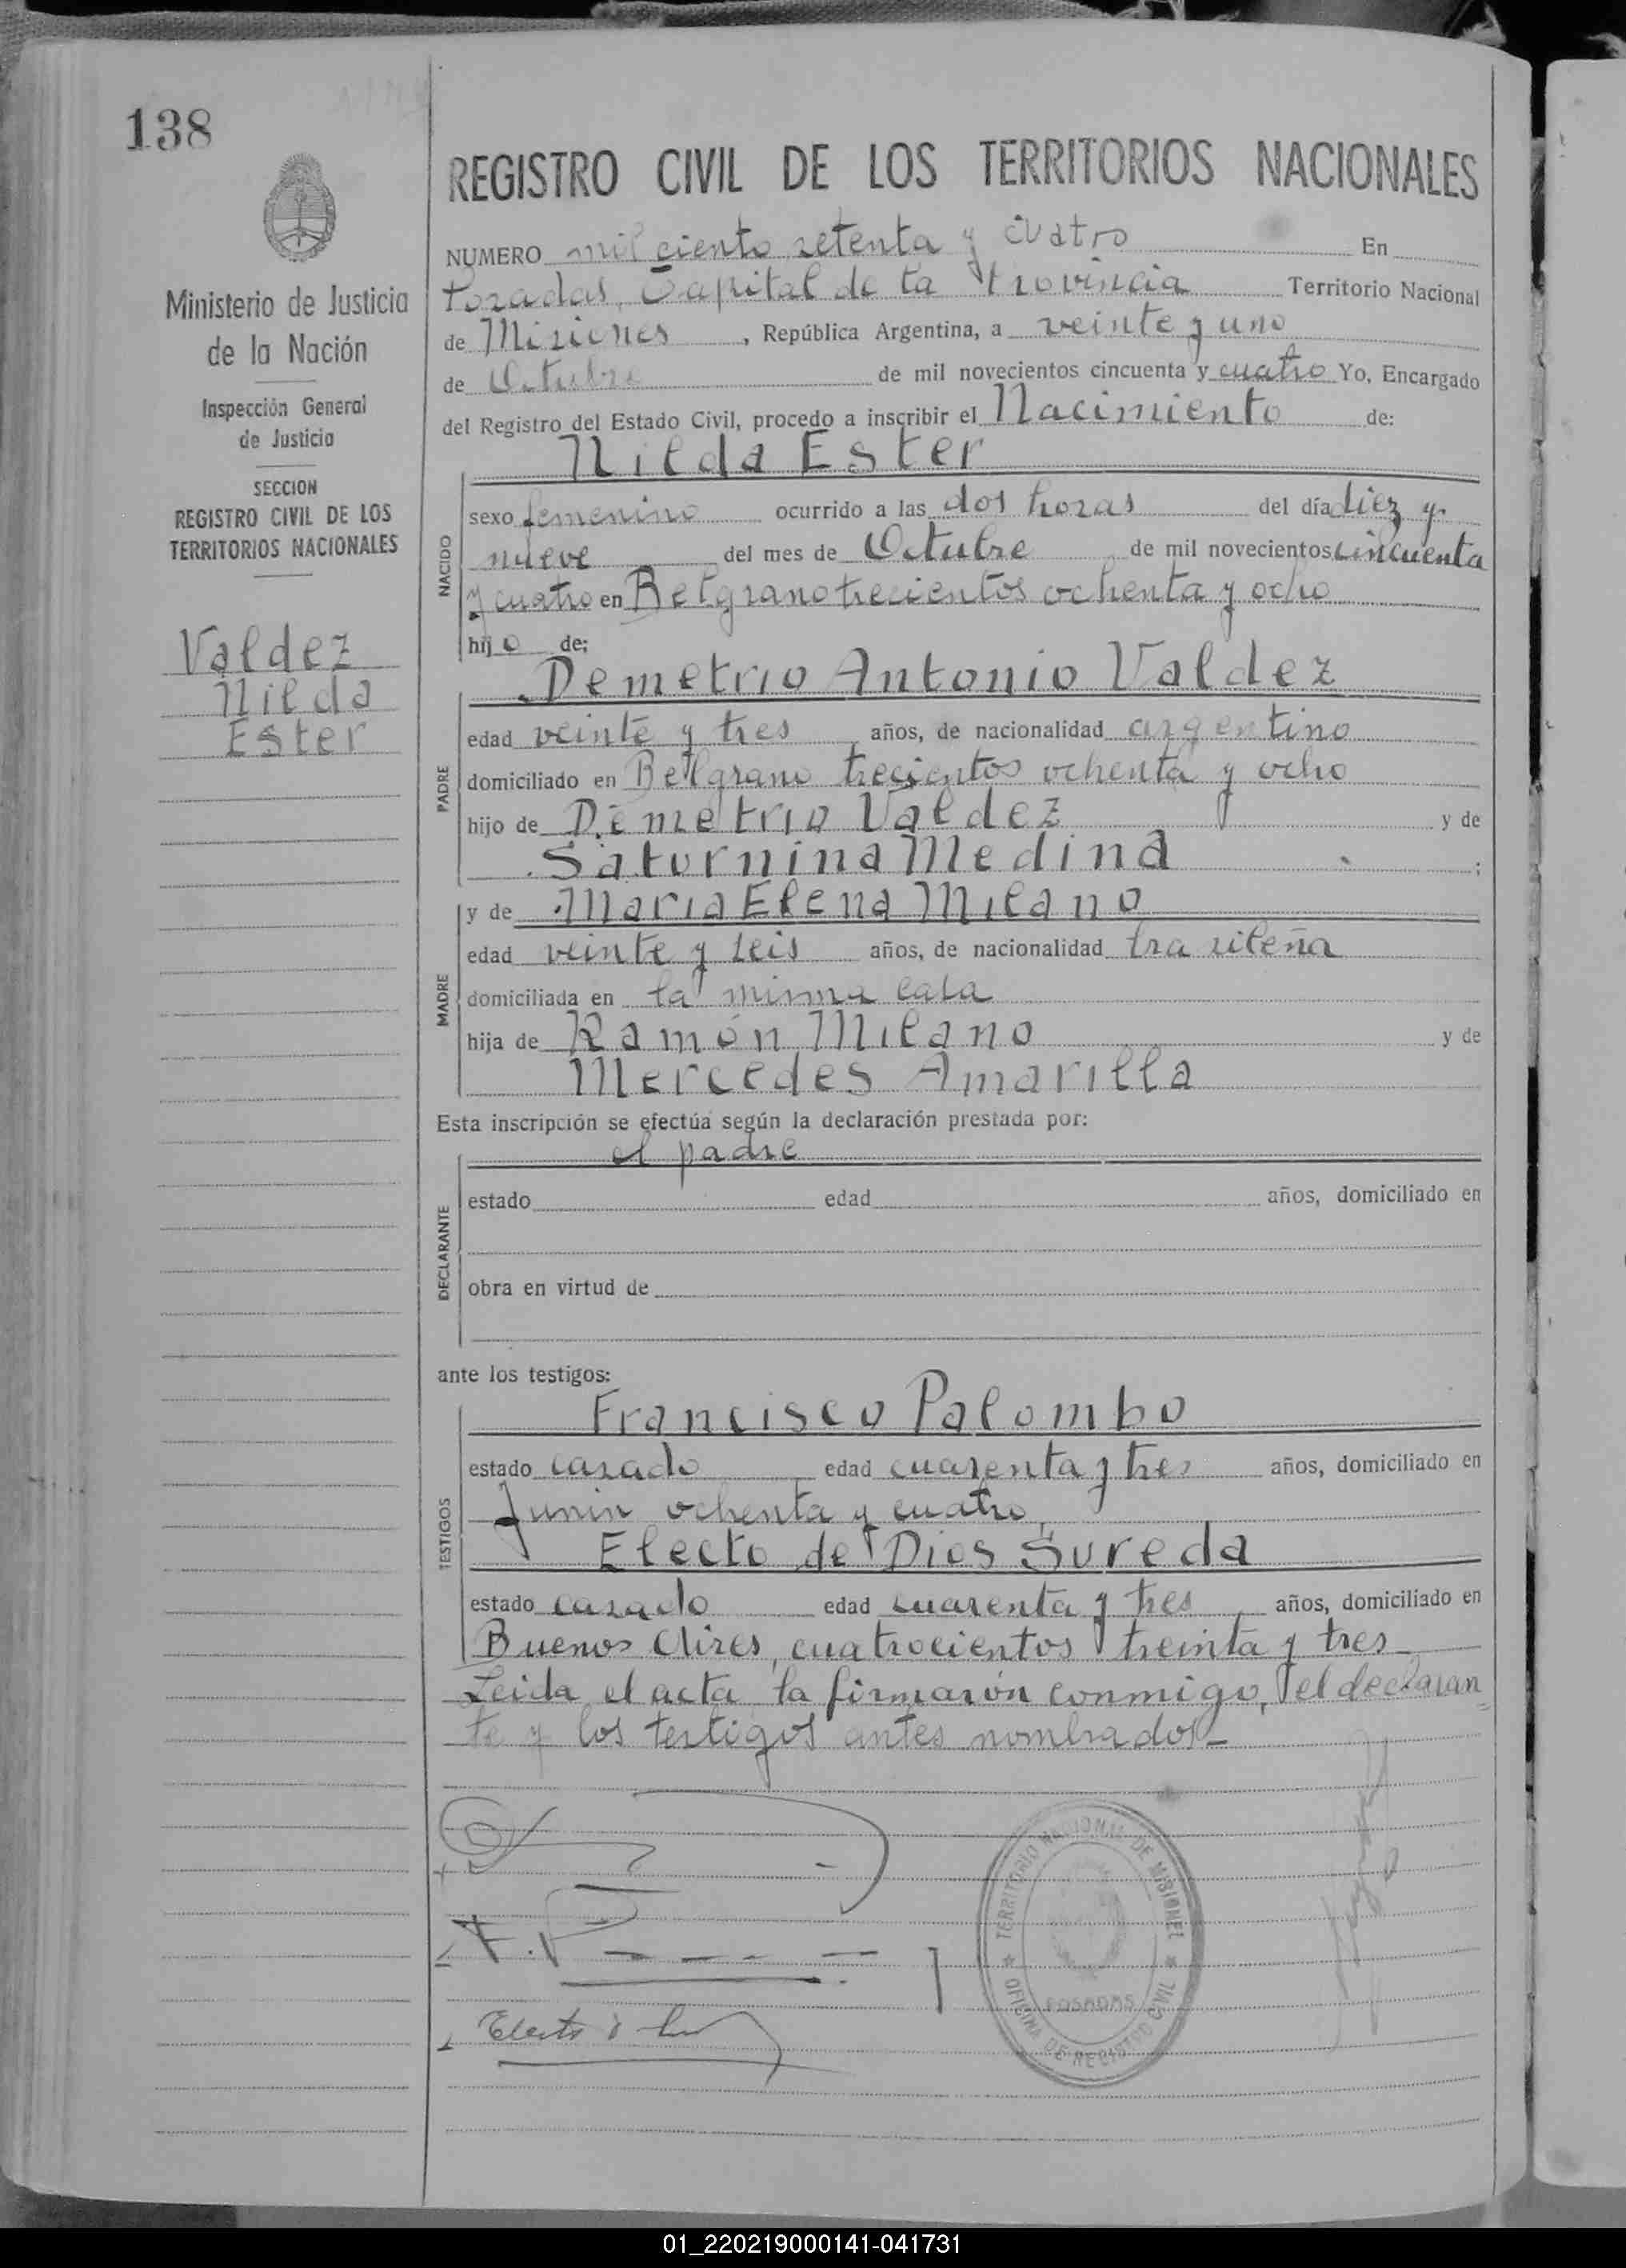 138
REGISTRO CIVIL DE LOS TERRITORIOS NACIONALES
Ministerio de Justicia
de la Nación
Inspección General
de Justicia
SECCION
REGISTRO CIVIL DE LOS
TERRITORIOS NACIONALES
Valdez
Nilda
Ester
NUMERO mil ciento setenta y cuatro En
Posadas, Capital de la Provincia Territorio Nacional
de Misiones, República Argentina, a veinte y uno
de Octubre de mil novecientos cincuenta y cuatro Yo, Encargado
del Registro del Estado Civil, procedo a inscribir el Nacimiento de:
Nilda Ester
NACIDO
sexo femenino ocurrido a las dos horas del día diez y
nueve del mes de Octubre de mil novecientos cincuenta
y cuatro en Belgrano trecientos ochenta y ocho
hijo de;
Demetrio Antonio Valdez
PADRE
edad veinte y tres años, de nacionalidad argentino
domiciliado en Belgrano trecientos ochenta y ocho
hijo de Demetrio Valdez y de
Saturnina Medina ;
y de Maria Elena Milano
MADRE
edad veinte y seis años, de nacionalidad brasileña
domiciliada en la misma casa
hija de Ramón Milano y de
Mercedes Amarilla
Esta inscripción se efectúa según la declaración prestada por:
el padre
DECLARANTE
estado edad años, domiciliado en
obra en virtud de
ante los testigos:
Francisco Palombo
TESTIGOS
estado casado edad cuarenta y tres años, domiciliado en
Junin ochenta y cuatro,
Electo de Dios Sureda
estado casado edad cuarenta y tres años, domiciliado en
Buenos Aires, cuatrocientos treinta y tres
Leida el acta la firmarón conmigo, el declaran
te y los testigos antes nombrados_
TERRITORIO NACIONAL DE MISIONES
POSADAS
OFICINA DE REGISTRO CIVIL
01_220219000141-041731